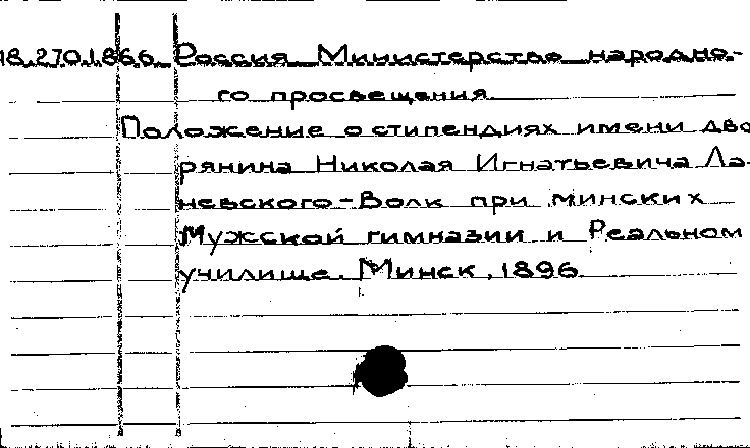 18.270.1.866 Россия Министерство народно-
го просвещения
Положение о стипендиях имени дво
рянина Николая Игнатьевича Ла-
невского-Волк при минских
Мужской гимназии и Реальном
училище. Минск, 1896